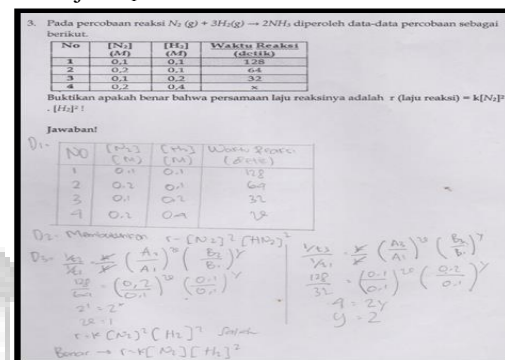 3. Pada percobaan reaksi N₂ (g) + 3H₂(g) → 2NH₃ diperoleh data-data percobaan sebagai
berikut.
No [N₂] (M) [H₂] (M) Waktu Reaksi (detik)
1 0,1 0,1 128
2 0,2 0,1 64
3 0,1 0,2 32
4 0,2 0,4 x
Buktikan apakah benar bahwa persamaan laju reaksinya adalah r (laju reaksi) = k[N₂]²
. [H₂]² !
Jawaban!
D1.
NO [N₂] [M] [H₂] [M] Waktu Reaksi (detik)
1 0.1 0.1 128
2 0.2 0.1 64
3 0.1 0.2 32
4 0.2 0.4
D2. r = [N₂]² [HN₂]²
D3. (A₂/A₁) (B₂/B₁)^y
128/64 = (0,2/0,1) (0.1/0.1)^y
r = k [N₂]² [H₂]² Salah
Benar → r = k[N₂] [H₂]²
(A₃/A₁) (B₃/B₁)^y
128/32 = (0.1/0.1) (0.2/0.1)^y
4 = 2y
y = 2